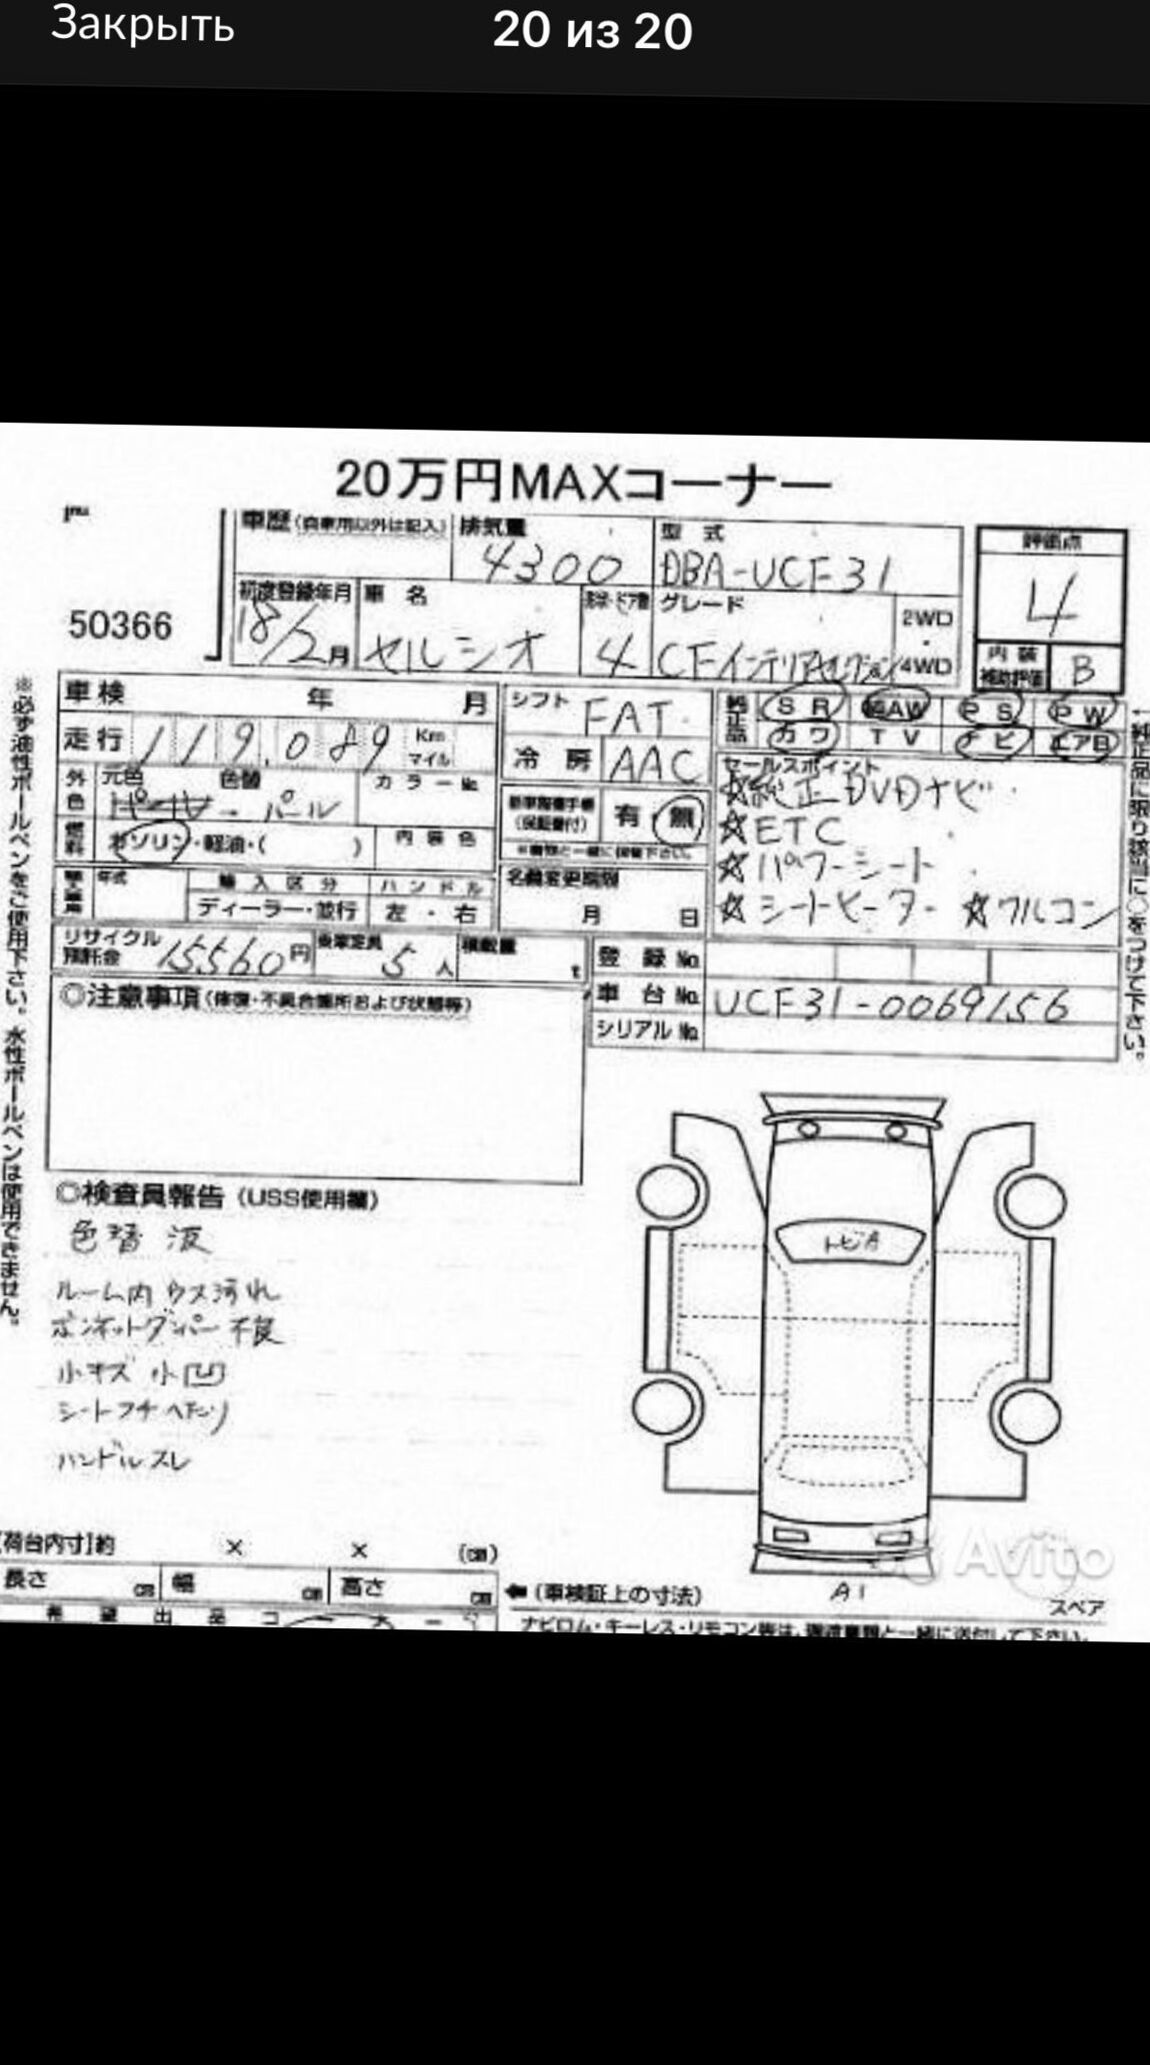 Закрыть
20 из 20
20万円MAXコーナー
車歴(自家用以外は記入)
排気量
4300
型式
DBA-UCF31
評価点
4
50366
初度登録年月
18/2月
車名
セルシオ
4
グレード
CFインテリアセレクション
2WD
・
4WD
内装
補助評価
B
車検 年 月
走行 119,089 Km
マイル
シフト FAT
冷房 AAC
純正品
SR AW PS PW
カワ TV ナビ エアB
外色
元色 色替 カラーNo.
→ パール
燃料
ガソリン・軽油・( )
内装色
(保証書付)
有・無
セールスポイント
☆純正DVDナビ
☆ETC
☆パワーシート
☆シートヒーター ☆フルコン
年式
輸入区分
ハンドル
ディーラー・並行
左・右
名義変更期限
月 日
リサイクル
預託金
15560円
乗車定員
5人
積載量
t
登録No.
車台No. UCF31-0069156
シリアルNo.
◎注意事項(修復・不具合箇所および状態等)
◎検査員報告(USS使用欄)
色替済
ルーム内ウス汚れ
ボンネットダンパー不良
小キズ 小凹
シートフチヘたり
ハンドルスレ
トビA
A1
スペア
[荷台内寸]約 × × (cm)
長さ cm 幅 cm 高さ cm
←(車検証上の寸法)
希望出品コーナー
ナビロム・キーレス・リモコン等は、譲渡書類と一緒に送付して下さい。
※必ず油性ボールペンをご使用下さい。水性ボールペンは使用できません。
←純正品に限り該当に○をつけて下さい。
Avito